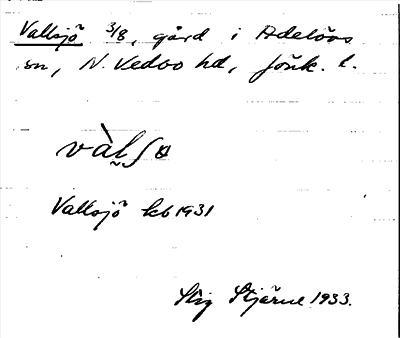 Vallsjö 3/8, gård i Adelövs
sn, N. Vedbo hd, Jönk. l.
vàl̬ʃɷ
Vallsjö kb 1931
Stig Stjärne 1933.